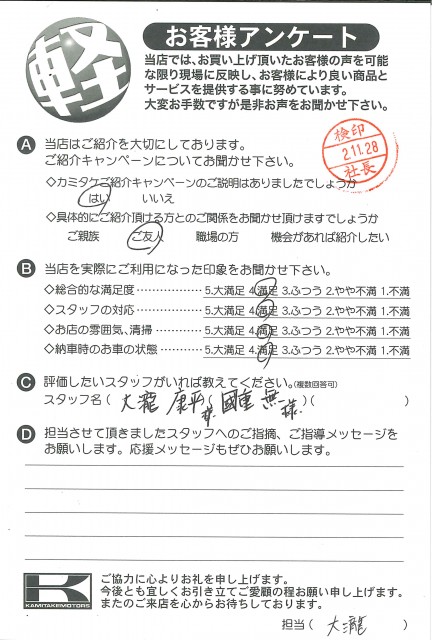 軽
お客様アンケート
当店では、お買い上げ頂いたお客様の声を可能
な限り現場に反映し、お客様により良い商品と
サービスを提供する事に努めています。
大変お手数ですが是非お声をお聞かせ下さい。
検印
2.11.28
社長
A 当店はご紹介を大切にしております。
ご紹介キャンペーンについてお聞かせ下さい。
◇カミタケご紹介キャンペーンのご説明はありましたでしょうか
はい いいえ
◇具体的にご紹介頂ける方とのご関係をお聞かせ頂けますでしょうか
ご親族 ご友人 職場の方 機会があれば紹介したい
B 当店を実際にご利用になった印象をお聞かせ下さい。
◇総合的な満足度‥‥‥‥‥‥ 5.大満足 4.満足 3.ふつう 2.やや不満 1.不満
◇スタッフの対応‥‥‥‥‥‥ 5.大満足 4.満足 3.ふつう 2.やや不満 1.不満
◇お店の雰囲気、清掃‥‥‥‥ 5.大満足 4.満足 3.ふつう 2.やや不満 1.不満
◇納車時のお車の状態‥‥‥‥ 5.大満足 4.満足 3.ふつう 2.やや不満 1.不満
C 評価したいスタッフがいれば教えてください。(複数回答可)
スタッフ名( 大瀧 康平様 國重 無 様 )( )
D 担当させて頂きましたスタッフへのご指摘、ご指導メッセージを
お願いします。応援メッセージもぜひお願いします。
K
KAMITAKEMOTORS
ご協力に心よりお礼を申し上げます。
今後とも宜しくお引き立てご愛顧の程お願い申し上げます。
またのご来店を心からお待ちしております。
担当( 大瀧 )